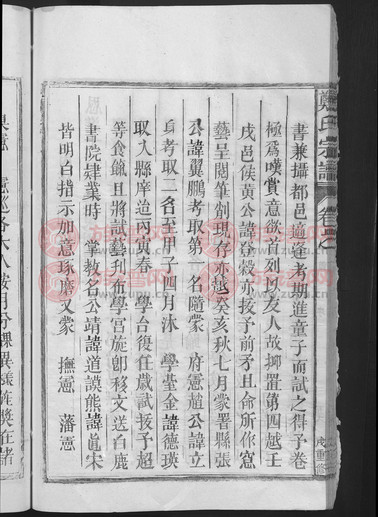 書兼攝都邑適逢考期進童子而試之得予卷
極爲嘆賞意欲首列以友人故擲置第四越壬
戌邑侯黃公諱登穀亦拔予前矛且命所作窻
藝呈閱筆削現存亦越癸亥秋七月蒙署縣張
公諱翼鵬考取第一名隨蒙 府憲趙公諱立
身考取二名至甲子四月沐 學堂金諱德瑛
取入縣庠迨丙寅春 學台復任歲試拔予超
等食餼且將試藝刋布學宫旋卽移文送白鹿
書院肄業時 掌教名公靖諱道謨熊諱直宋
皆明白指示加意琢磨又蒙 撫憲 藩憲
鄭氏宗譜 卷之